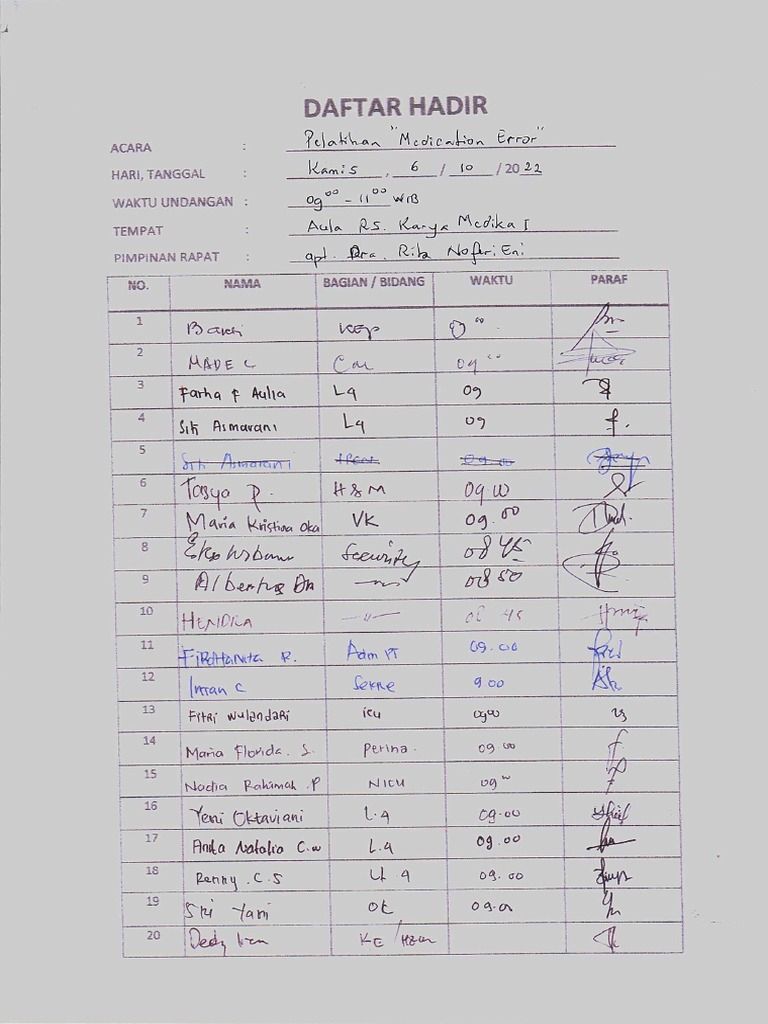 DAFTAR HADIR
ACARA : Pelatihan "Medication Error"
HARI, TANGGAL : Kamis, 6 / 10 / 2022
WAKTU UNDANGAN : 09⁰⁰ - 11⁰⁰ WIB
TEMPAT : Aula RS. Karya Medika I
PIMPINAN RAPAT : apt. Dra. Rita Noferi Eni
NO. NAMA BAGIAN / BIDANG WAKTU PARAF
1 Kep
2 MADE C 09⁰⁰
3 Farha F Aulia L4 09
4 Siti Asmarani L4 09
5 Siti Asmarani 09.00
6 Tasya P. 09.00
7 Maria Kristina Oka VK 09.00
8 Eko Security 08 45
9 Albertus 08 50
10 HENDRA —〃— 08 45
11 R. Adm 09.00
12 Intan C Sekre 9.00
13 Fitri Wulandari icu 0900
14 Maria Florida. S. Perina. 09.00
15 Nadia Rahimah .P NICU 09
16 Yeni Oktaviani L.4 09.00
17 Anita Natalia C.w L.4 09.00
18 Renny .C.S 09.00
19 Sri Yani OK
20 Dedy